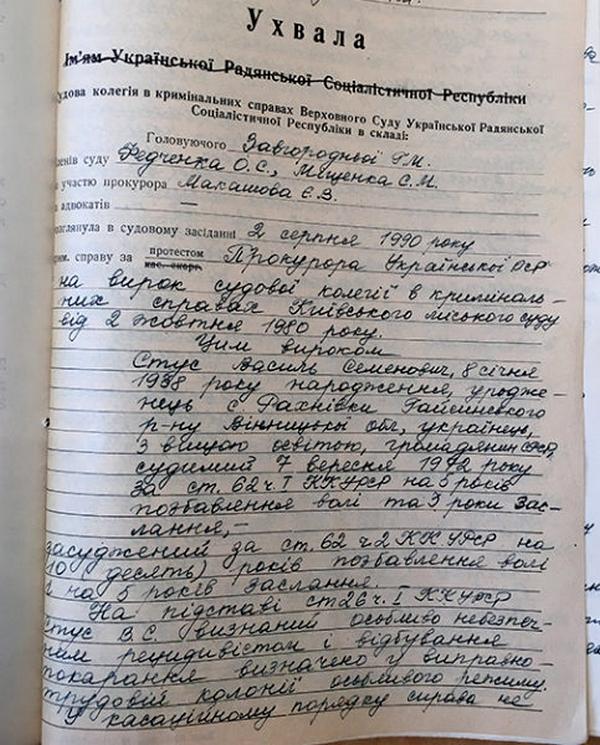 Ухвала
Ім'ям Української Радянської Соціалістичної Республіки
Судова колегія в кримінальних справах Верховного Суду Української Радянської
Соціалістичної Республіки в складі:
Головуючого Завгородньої Г.И.
членів суду Федченка О.С., Міщенка С.М.
участю прокурора Макашова Є.В.
адвокатів —
розглянула в судовому засіданні 2 серпня 1990 року
крим. справу за протестом Прокурора Української РСР
кас. скарг.
на вирок судової колегії в криміналь-
них справах Київського міського суду
від 2 жовтня 1980 року.
Цим вироком
Стус Василь Семенович, 8 січня
1938 року народження, уродже-
нець с Рахнівки Гайсинського
р-ну Вінницької обл, українець,
з вищою освітою, громадянин СРСР,
судимий 7 вересня 1972 року
за ст. 62 ч. I ККУРСР на 5 років
позбавлення волі та 3 роки зас-
лання,-
засуджений за ст. 62 ч.2 КК УРСР на
10 (десять) років позбавлення волі
і на 5 років заслання.
На підставі ст 26 ч. I ККУРСР
Стус В.С. визнаний особливо небезпеч-
ним рецидивістом і відбування
покарання визначено у виправно-
трудовій колонії особливого режиму.
У касаційному порядку справа не